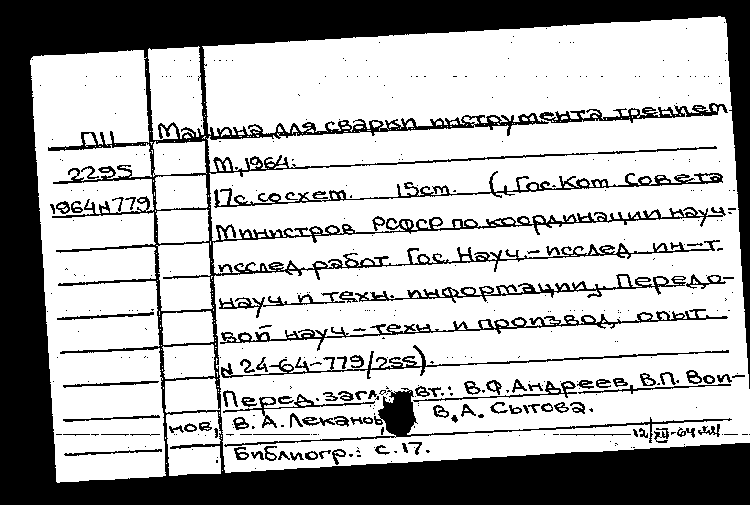 ПП Машина для сварки инструмента трением
2295 М., 1964.
1964 N 779 17 с. со схем. 15 см. (, Гос. Ком. Совета
Министров РСФСР по координации науч.-
исслед. работ. Гос. Науч.-исслед. ин-т.
науч. и техн. информации; Передо-
вой науч-техн. и производ. опыт
N 24-64-779/255).
Перед. загл. авт.: В.Ф. Андреев, В.П. Вои-
нов, В.А. Леканов, В.А. Сытова.
Библиогр.: с. 17.